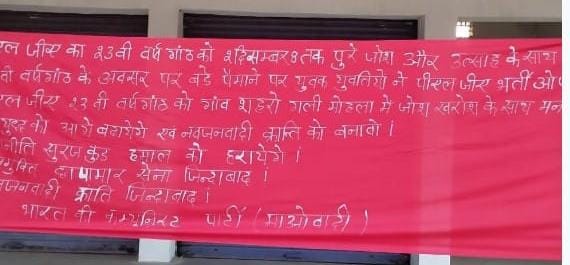 एल जीए का २३वी वर्ष गांठ को २दिसम्बर ८ तक पुरे जोश और उत्साह के साथ
वी वर्षगांठ के अवसर पर बडे पैमाने पर युवक युवतियो ने पीएल जीए भर्ती
एल जीए २३वी वर्षगांठ को गांव शहरो गली मोहला मे जोश खरोश के साथ
को आगे बढायेगे एव नवजनवादी क्रान्ति को बनावो।
नीति सुरज कुंड हमाल को हरायेगे।
मुक्ति छापामार सेना जिन्दाबाद।
क्राति जिन्दाबाद।
भारत की कम्युनिस्ट पार्टी (माओवादी)